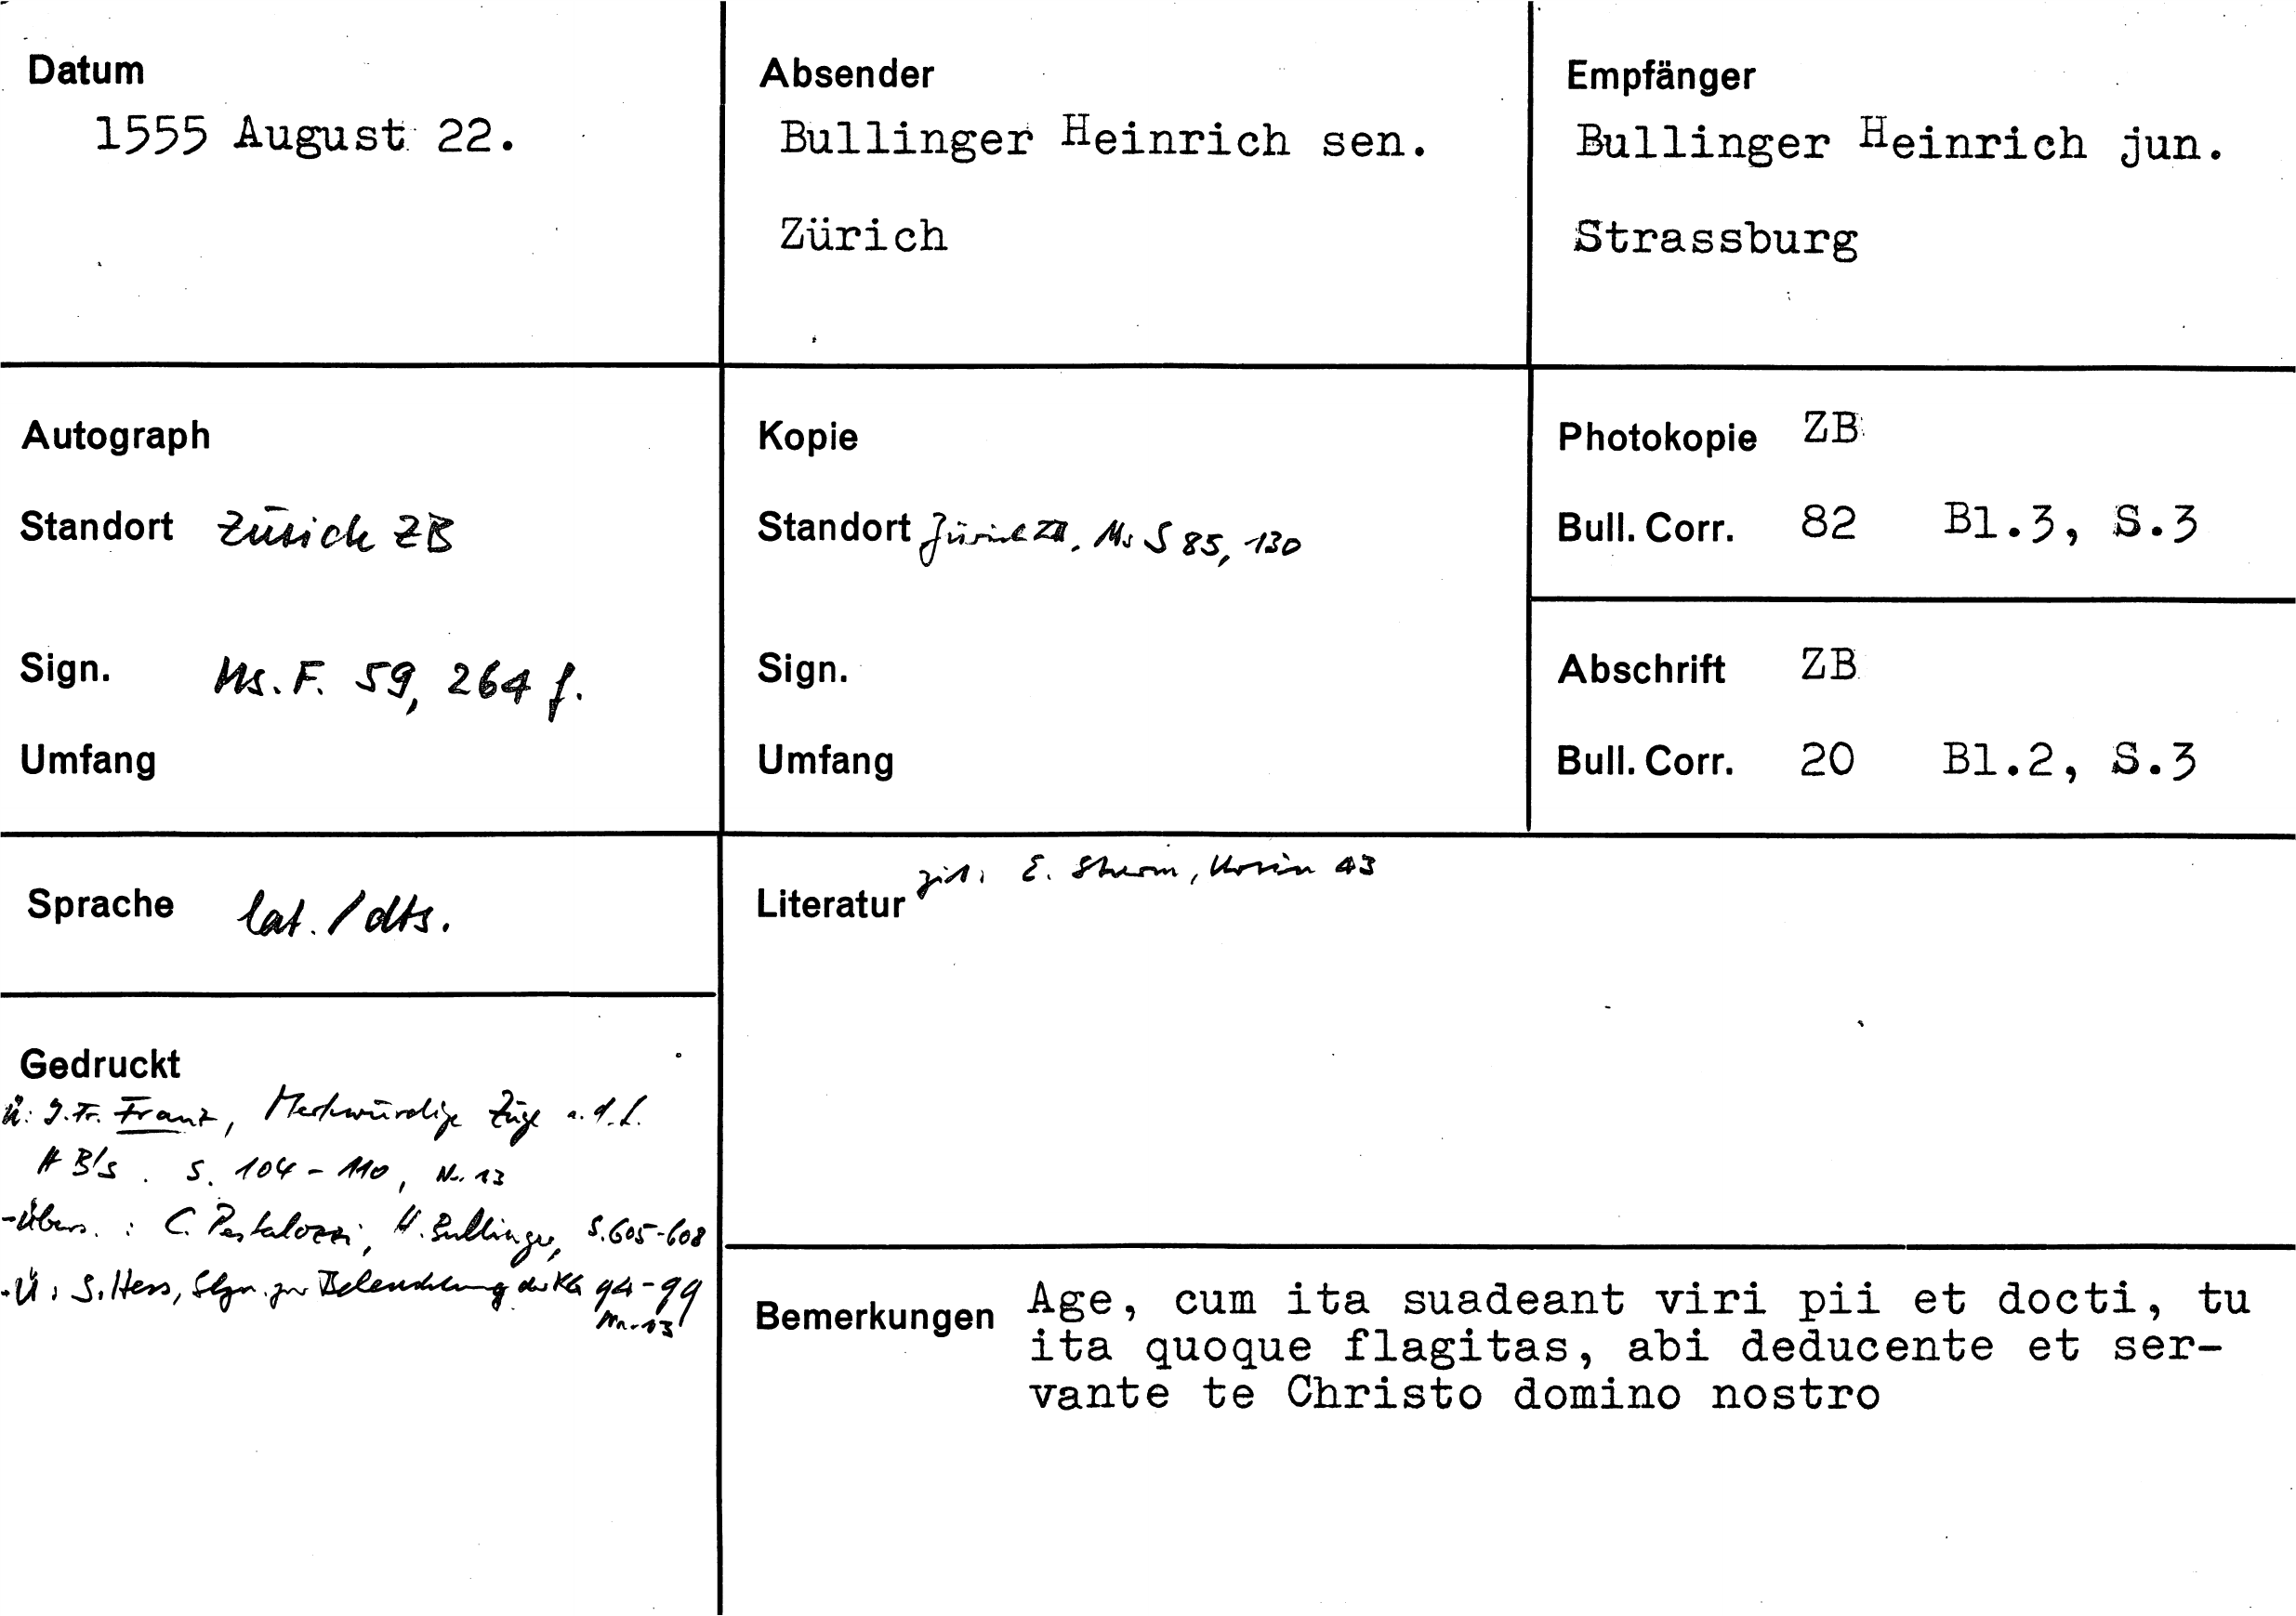 Datum
1555 August 22.
Absender
Bullinger Heinrich sen.
Zürich
Empfänger
Bullinger Heinrich jun.
Strassburg
Autograph
Standort Zürich ZB
Sign. Ms. F. 59, 264 f.
Umfang
Kopie
Standort Zürich ZB, Ms S 85, 130
Sign.
Umfang
Photokopie ZB
Bull. Corr. 82 Bl.3, S.3
Abschrift ZB
Bull. Corr. 20 Bl.2, S.3
Sprache lat. / dts.
Literatur zit: E. Sturm, Ursin 43
Gedruckt
Ü: J. Fr. Franz, Merkwürdige Züge a. d. L.
H B's. S. 104-110, Nr. 13
-Übers.: C. Pestalozzi, H. Bullinger, S. 605-608
-Ü: S. Hess, Slgn. zur Beleuchtung der KG 94-99
Nr. 13
Bemerkungen Age, cum ita suadeant viri pii et docti, tu
ita quoque flagitas, abi deducente et ser-
vante te Christo domino nostro